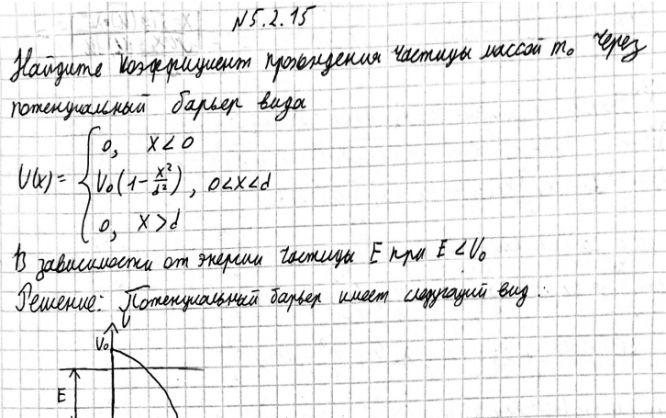 N5.2.15
Найдите коэффициент прохождения частицы массой m₀ через
потенциальный барьер вида
U(x) = { 0, x < 0
V₀(1 - x²/d²), 0 < x < d
0, x > d
В зависимости от энергии частицы E при E < V₀
Решение: Потенциальный барьер имеет следующий вид:
U
V₀
E